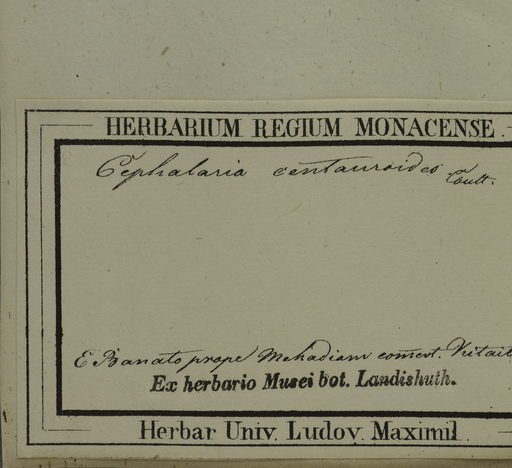 HERBARIUM REGIUM MONACENSE.
Cephalaria centauroides Coult.
E Banato prope Mehadiam
Ex herbario Musei bot. Landishuth.
Herbar Univ. Ludov. Maximil.